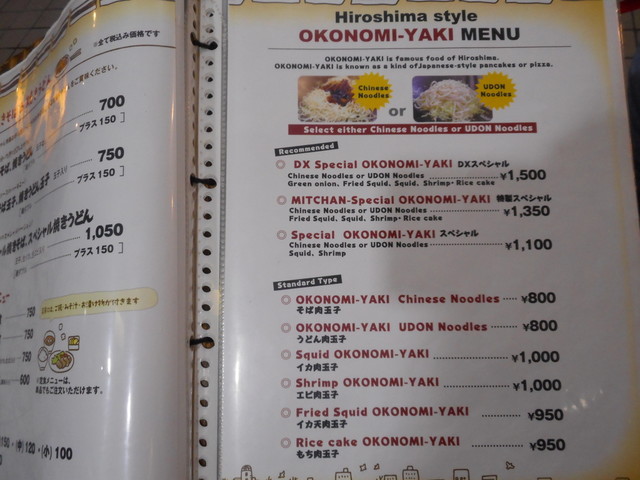 ※全て税込み価格です
ご賞味ください。
700
プラス150]
750
プラス150]
スペシャル焼きうどん
1,050
プラス150]
ニュー
750
750
750
600
※定食メニューは、
単品でもご注文いただけます。
・(中)120・(小)100
Hiroshima style
OKONOMI-YAKI MENU
OKONOMI-YAKI is famous food of Hiroshima.
OKONOMI-YAKI is known as a kind of Japanese-style pancakes or pizza.
Chinese
Noodles
or
UDON
Noodles
Select either Chinese Noodles or UDON Noodles
Recommended
DX Special OKONOMI-YAKI DXスペシャル
Chinese Noodles or UDON Noodles ¥1,500
Green onion. Fried Squid. Squid. Shrimp・Rice cake
MITCHAN-Special OKONOMI-YAKI 特製スペシャル
Chinese Noodles or UDON Noodles ¥1,350
Fried Squid. Squid. Shrimp・Rice cake
Special OKONOMI-YAKI スペシャル
Chinese Noodles or UDON Noodles ¥1,100
Squid. Shrimp
Standard Type
OKONOMI-YAKI Chinese Noodles ¥800
そば肉玉子
OKONOMI-YAKI UDON Noodles ¥800
うどん肉玉子
Squid OKONOMI-YAKI ¥1,000
イカ肉玉子
Shrimp OKONOMI-YAKI ¥1,000
エビ肉玉子
Fried Squid OKONOMI-YAKI ¥950
イカ天肉玉子
Rice cake OKONOMI-YAKI ¥950
もち肉玉子